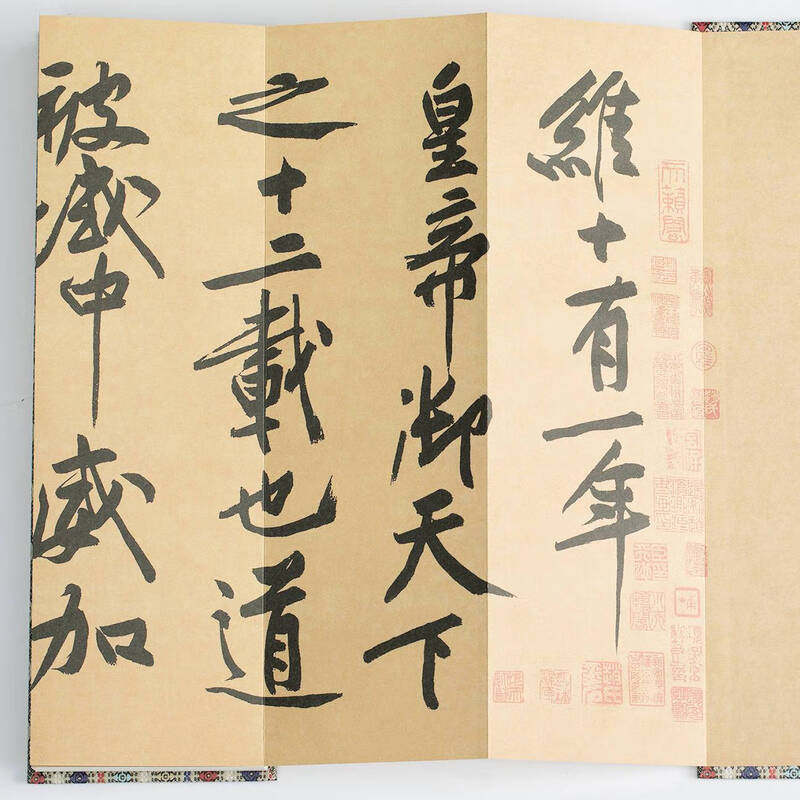 天籟閣
維十有一年
皇帝御天下
之十二載也道
被域中威加